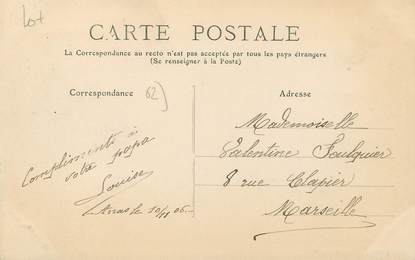 Lot
CARTE POSTALE
La Correspondance au recto n'est pas acceptée par tous les pays étrangers
(Se renseigner à la Poste)
Correspondance
62)
Adresse
Compliments à
votre papa
Louise
Arras le 10/11 06
Mademoiselle
Valentine Feulquier
8 rue Clapier
Marseille